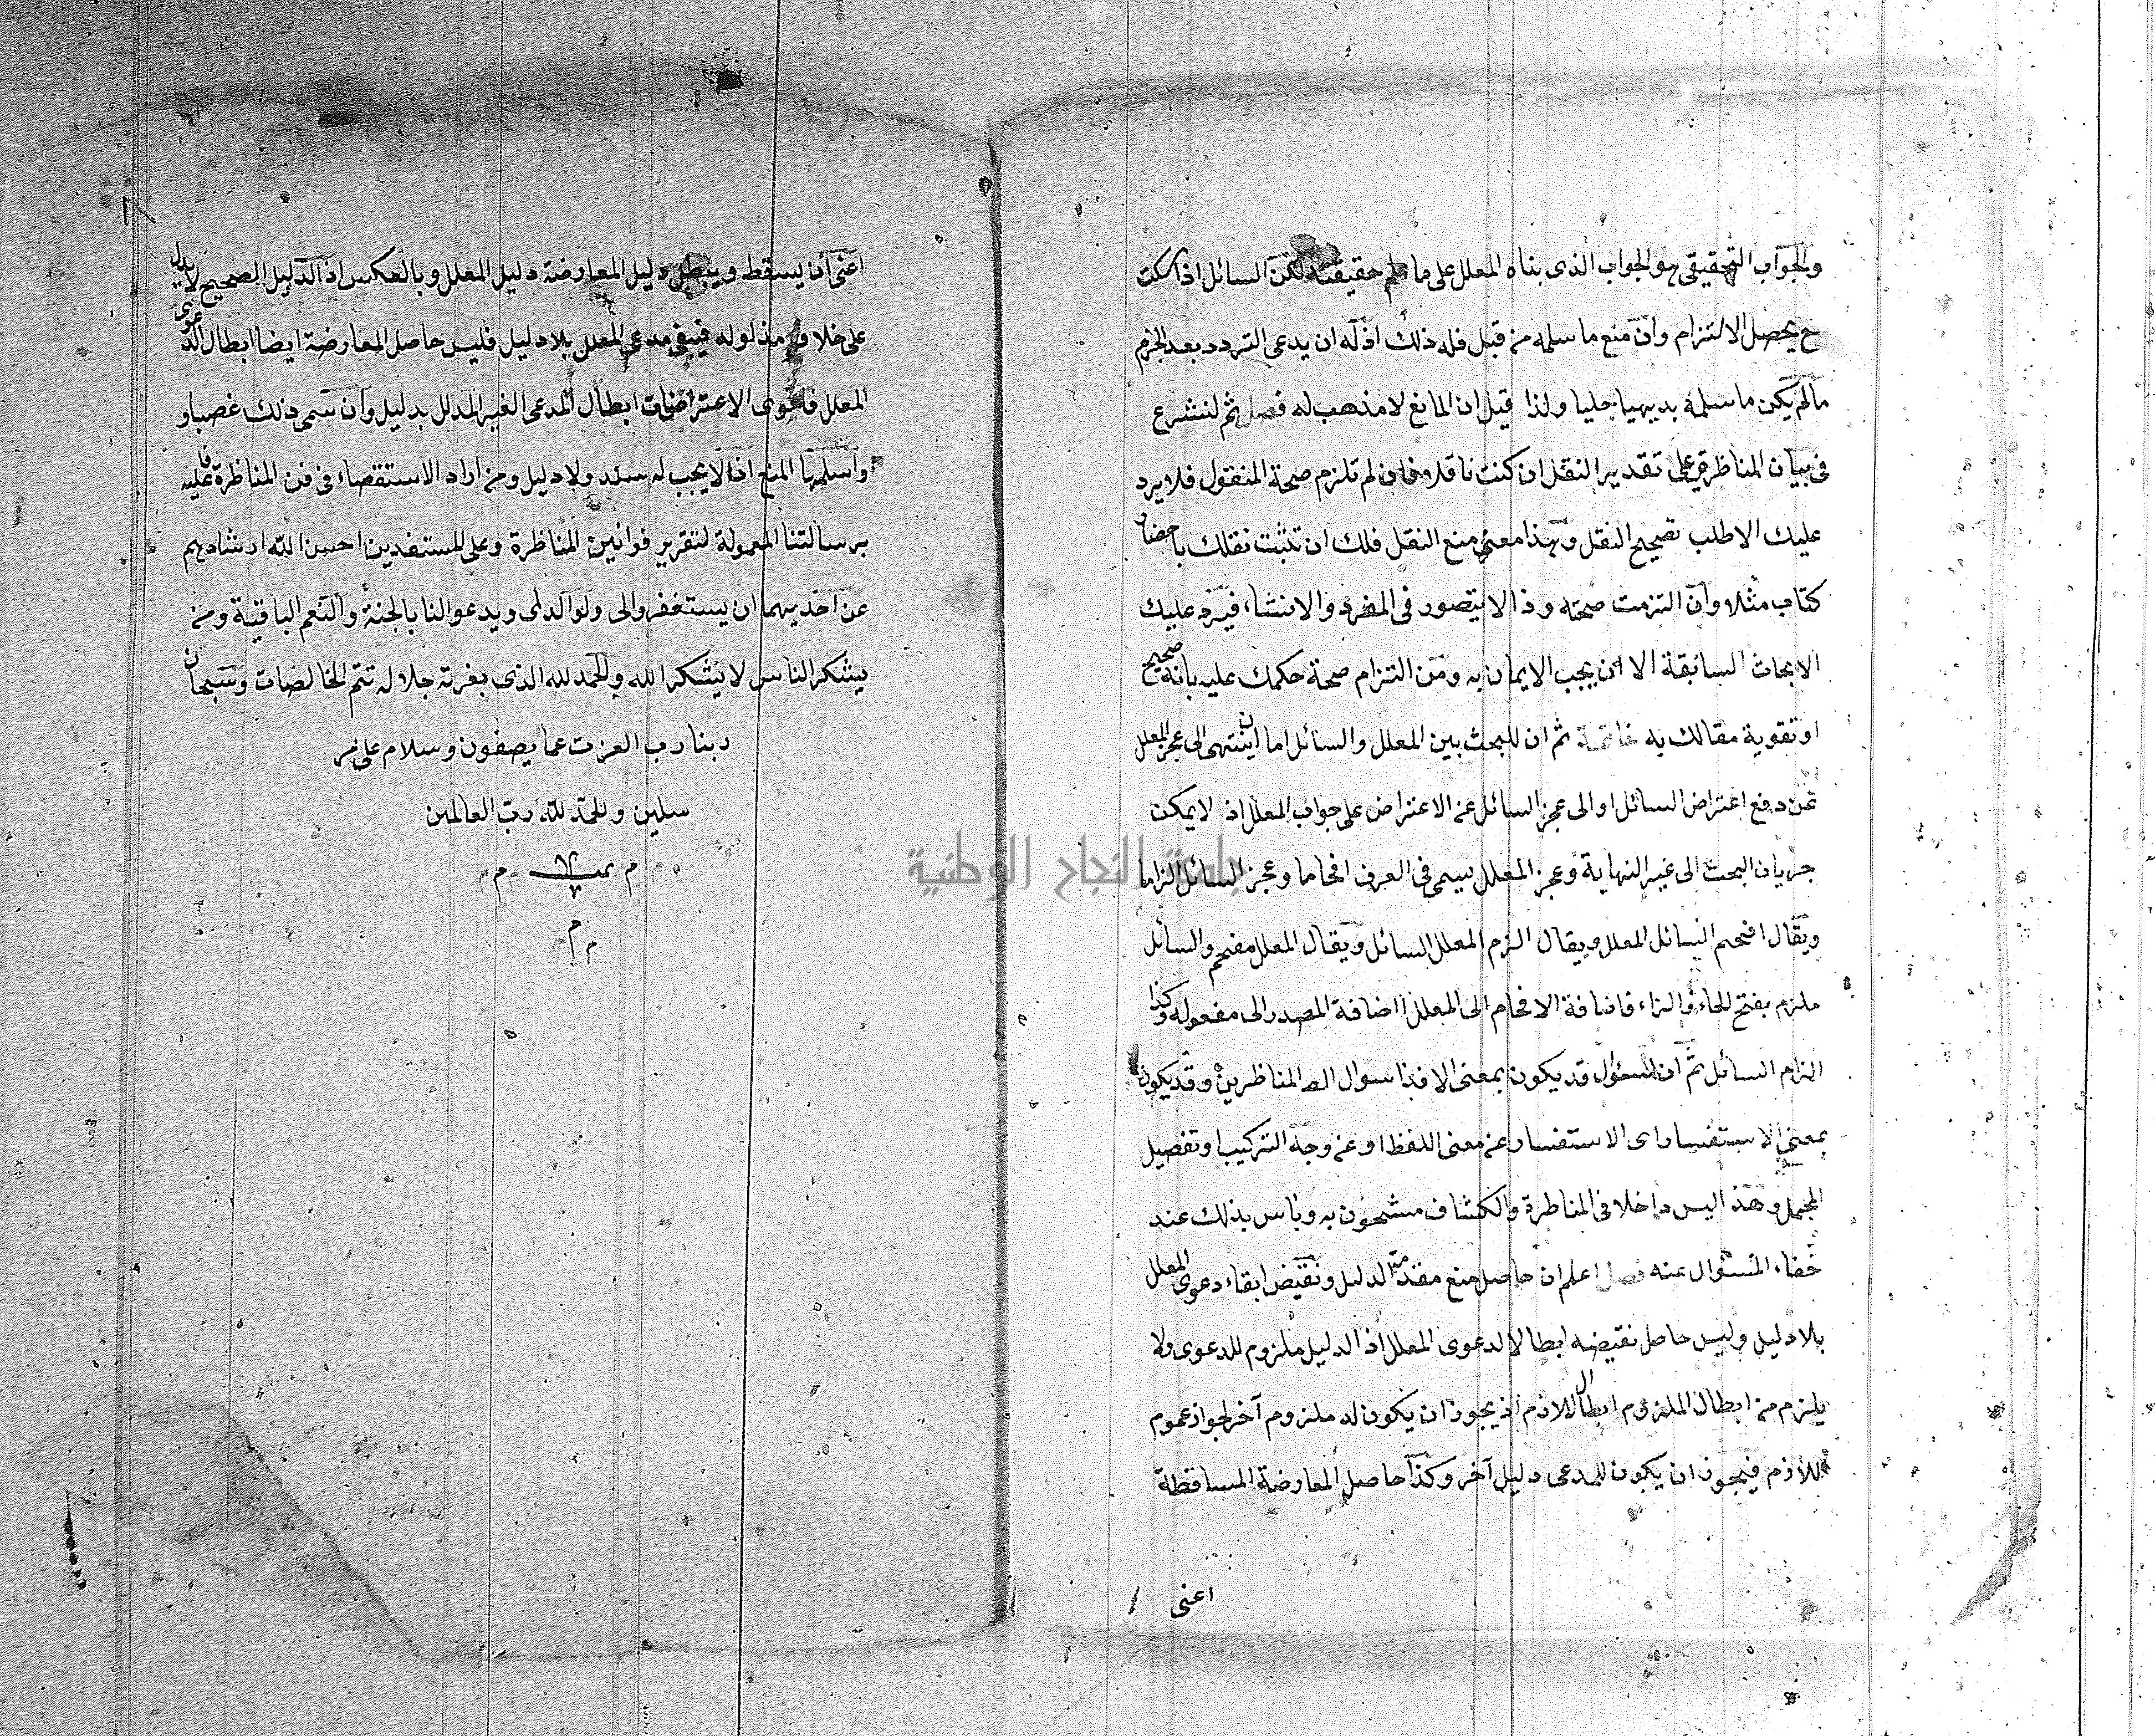 والجواب التحقيقي هو الجواب الذى بناه المعلل على ما علم حقيقته لكن السائل اذا سكت
ح يحصل الالتزام وان منع ما سلمه من قبل فله ذلك اذ له ان يدعى التردد بعد الجزم
مالم يكن ما سلمه بديهيا جليا ولذا قيل ان المانع لا مذهب له فصل ثم لنشرع
فى بيان المناظرة على تقدير النقل ان كنت ناقلا فان لم تلزم صحة المنقول فلا يرد
عليك الا طلب تصحيح النقل وهذا معنى منع النقل فلك ان تثبت نقلك باحضار
كتاب مثلا وان التزمت صحته وذا لا يتصور فى المفرد والانشاء فيرد عليك
الابحاث السابقة الا ان يجب الايمان به ومن التزام صحة حكمك عليه بانه صحيح
او تقوية مقالك به خاتمة ثم ان البحث بين المعلل والسائل اما ان ينتهى الى عجز المعلل
عن دفع اعتراض السائل او الى عجز السائل عن الاعتراض على جواب المعلل اذ لا يمكن
جريان البحث الى غير النهاية وعجز المعلل يسمى فى العرف افحاما وعجز السائل الزاما
ويقال افحم السائل المعلل ويقال الزم المعلل السائل ويقال المعلل مفحم والسائل
ملزم بفتح الحاء والزاء فاضافة الافحام الى المعلل اضافة المصدر الى مفعوله وكذا
الزام السائل ثم ان السؤال قد يكون بمعنى سوال المناظرين وقد يكون
بمعنى الاستفسار اى الاستفسار عن معنى اللفظ او عن وجه التركيب او تفصيل
المجمل وهذا ليس داخلا فى المناظرة والكشاف مشحون به وباس بذلك عند
خفاء المسئوال عنه فصل اعلم ان حاصل منع مقدمة الدليل ونقيض ابقاء دعوى المعلل
بلا دليل وليس حاصل نقيضه ابطالا لدعوى المعلل اذ الدليل ملزوم للدعوى ولا
يلزم من ابطال الملزوم ابطال اللازم اذ يجوز ان يكون له ملزوم آخر لجواز عموم
اللازم فيجوز ان يكون للمدعى دليل آخر وكذا حاصل المعارضة المساقطة
اعنى
اعنى ان يسقط ويبطل دليل المعارضة دليل المعلل وبالعكس اذ الدليل الصحيح لا يدل
على خلاف مدلوله فيبقى مدعى المعلل بلا دليل فليس حاصل المعارضة ايضا ابطال الدعوى
المعلل فاقوى الاعتراضات ابطال المدعى الغير المدلل بدليل وان سمى ذلك غصبا و
واسلمها المنع اذ لا يجب له سند ولا دليل ومن اراد الاستقصاء فى فن المناظرة فعليه
برسالتنا المعمولة لتقرير قوانين المناظرة وعلى المستفدين احسن الله ارشادهم
عن احديهما ان يستغفر والى ولوالدى ويدعو النا بالجنة والنعم الباقية ومن
يشكر الناس لا يشكر الله والحمد لله الذى بغرته جلاله تتم الخالصات وسبحان
ربنا رب العزت عما يصفون وسلام على مر
سلين والحمد لله رب العالمين
م تمت م
م م
جامعة النجاح الوطنية